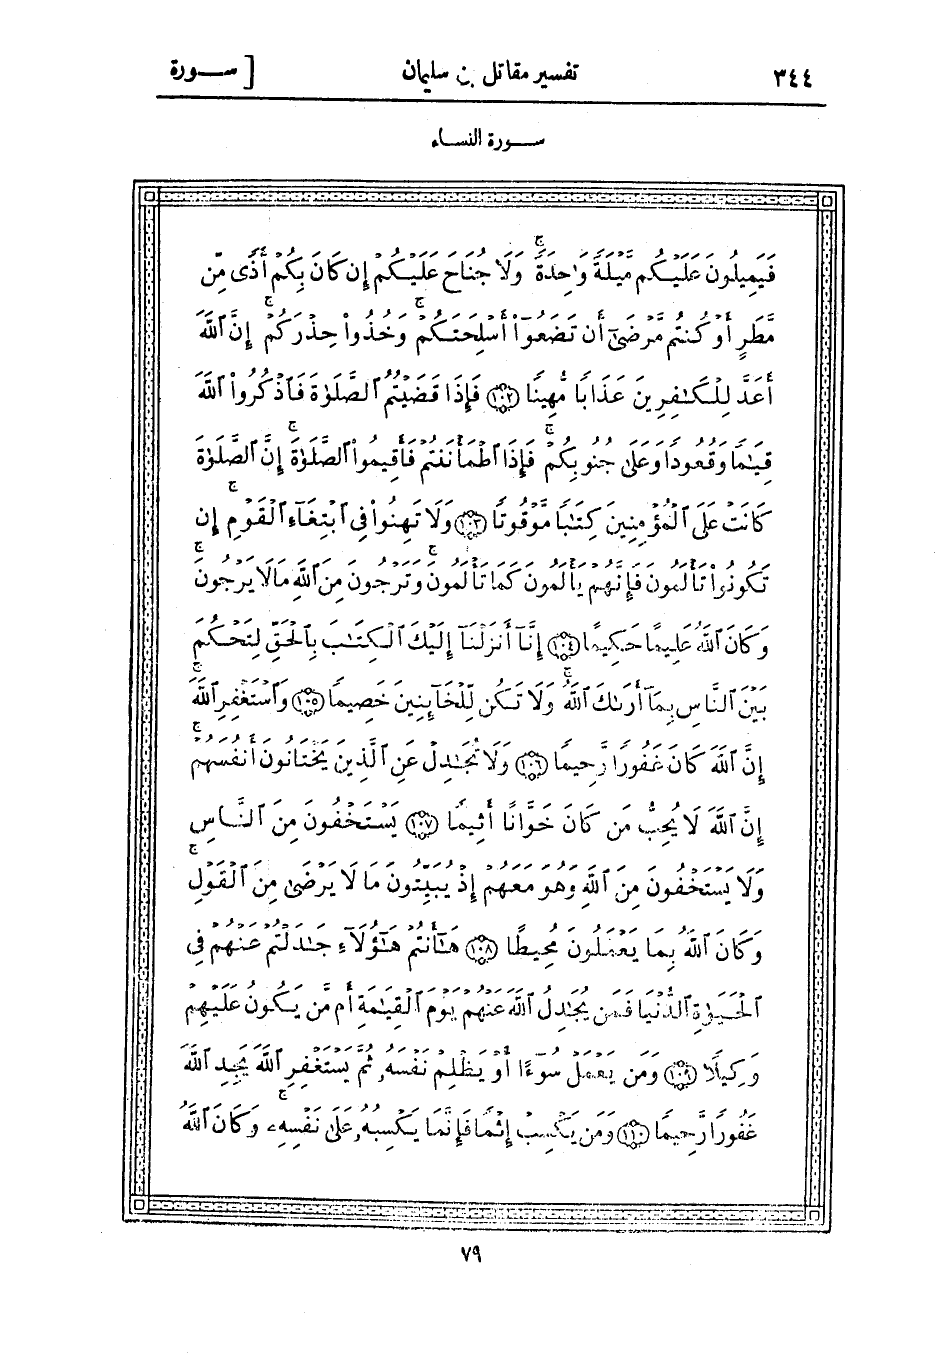 ٣٤٤ تفسير مقاتل بن سليمان [ سـورة
سـورة النسـاء
فَيَمِيلُونَ عَلَيْكُم مَّيْلَةً وَٰحِدَةً ۚ وَلَا جُنَاحَ عَلَيْكُمْ إِن كَانَ بِكُمْ أَذًى مِّن
مَّطَرٍ أَوْ كُنتُم مَّرْضَىٰٓ أَن تَضَعُوٓا۟ أَسْلِحَتَكُمْ ۖ وَخُذُوا۟ حِذْرَكُمْ ۗ إِنَّ ٱللَّهَ
أَعَدَّ لِلْكَـٰفِرِينَ عَذَابًا مُّهِينًا ﴿١٠٢﴾ فَإِذَا قَضَيْتُمُ ٱلصَّلَوٰةَ فَٱذْكُرُوا۟ ٱللَّهَ
قِيَـٰمًا وَقُعُودًا وَعَلَىٰ جُنُوبِكُمْ ۚ فَإِذَا ٱطْمَأْنَنتُمْ فَأَقِيمُوا۟ ٱلصَّلَوٰةَ ۚ إِنَّ ٱلصَّلَوٰةَ
كَانَتْ عَلَى ٱلْمُؤْمِنِينَ كِتَـٰبًا مَّوْقُوتًا ﴿١٠٣﴾ وَلَا تَهِنُوا۟ فِى ٱبْتِغَآءِ ٱلْقَوْمِ ۖ إِن
تَكُونُوا۟ تَأْلَمُونَ فَإِنَّهُمْ يَأْلَمُونَ كَمَا تَأْلَمُونَ ۖ وَتَرْجُونَ مِنَ ٱللَّهِ مَا لَا يَرْجُونَ ۗ
وَكَانَ ٱللَّهُ عَلِيمًا حَكِيمًا ﴿١٠٤﴾ إِنَّآ أَنزَلْنَآ إِلَيْكَ ٱلْكِتَـٰبَ بِٱلْحَقِّ لِتَحْكُمَ
بَيْنَ ٱلنَّاسِ بِمَآ أَرَىٰكَ ٱللَّهُ ۚ وَلَا تَكُن لِّلْخَآئِنِينَ خَصِيمًا ﴿١٠٥﴾ وَٱسْتَغْفِرِ ٱللَّهَ ۖ
إِنَّ ٱللَّهَ كَانَ غَفُورًا رَّحِيمًا ﴿١٠٦﴾ وَلَا تُجَـٰدِلْ عَنِ ٱلَّذِينَ يَخْتَانُونَ أَنفُسَهُمْ ۚ
إِنَّ ٱللَّهَ لَا يُحِبُّ مَن كَانَ خَوَّانًا أَثِيمًا ﴿١٠٧﴾ يَسْتَخْفُونَ مِنَ ٱلنَّاسِ
وَلَا يَسْتَخْفُونَ مِنَ ٱللَّهِ وَهُوَ مَعَهُمْ إِذْ يُبَيِّتُونَ مَا لَا يَرْضَىٰ مِنَ ٱلْقَوْلِ ۚ
وَكَانَ ٱللَّهُ بِمَا يَعْمَلُونَ مُحِيطًا ﴿١٠٨﴾ هَـٰٓأَنتُمْ هَـٰٓؤُلَآءِ جَـٰدَلْتُمْ عَنْهُمْ فِى
ٱلْحَيَوٰةِ ٱلدُّنْيَا فَمَن يُجَـٰدِلُ ٱللَّهَ عَنْهُمْ يَوْمَ ٱلْقِيَـٰمَةِ أَم مَّن يَكُونُ عَلَيْهِمْ
وَكِيلًا ﴿١٠٩﴾ وَمَن يَعْمَلْ سُوٓءًا أَوْ يَظْلِمْ نَفْسَهُۥ ثُمَّ يَسْتَغْفِرِ ٱللَّهَ يَجِدِ ٱللَّهَ
غَفُورًا رَّحِيمًا ﴿١١٠﴾ وَمَن يَكْسِبْ إِثْمًا فَإِنَّمَا يَكْسِبُهُۥ عَلَىٰ نَفْسِهِۦ ۚ وَكَانَ ٱللَّهُ
٧٩